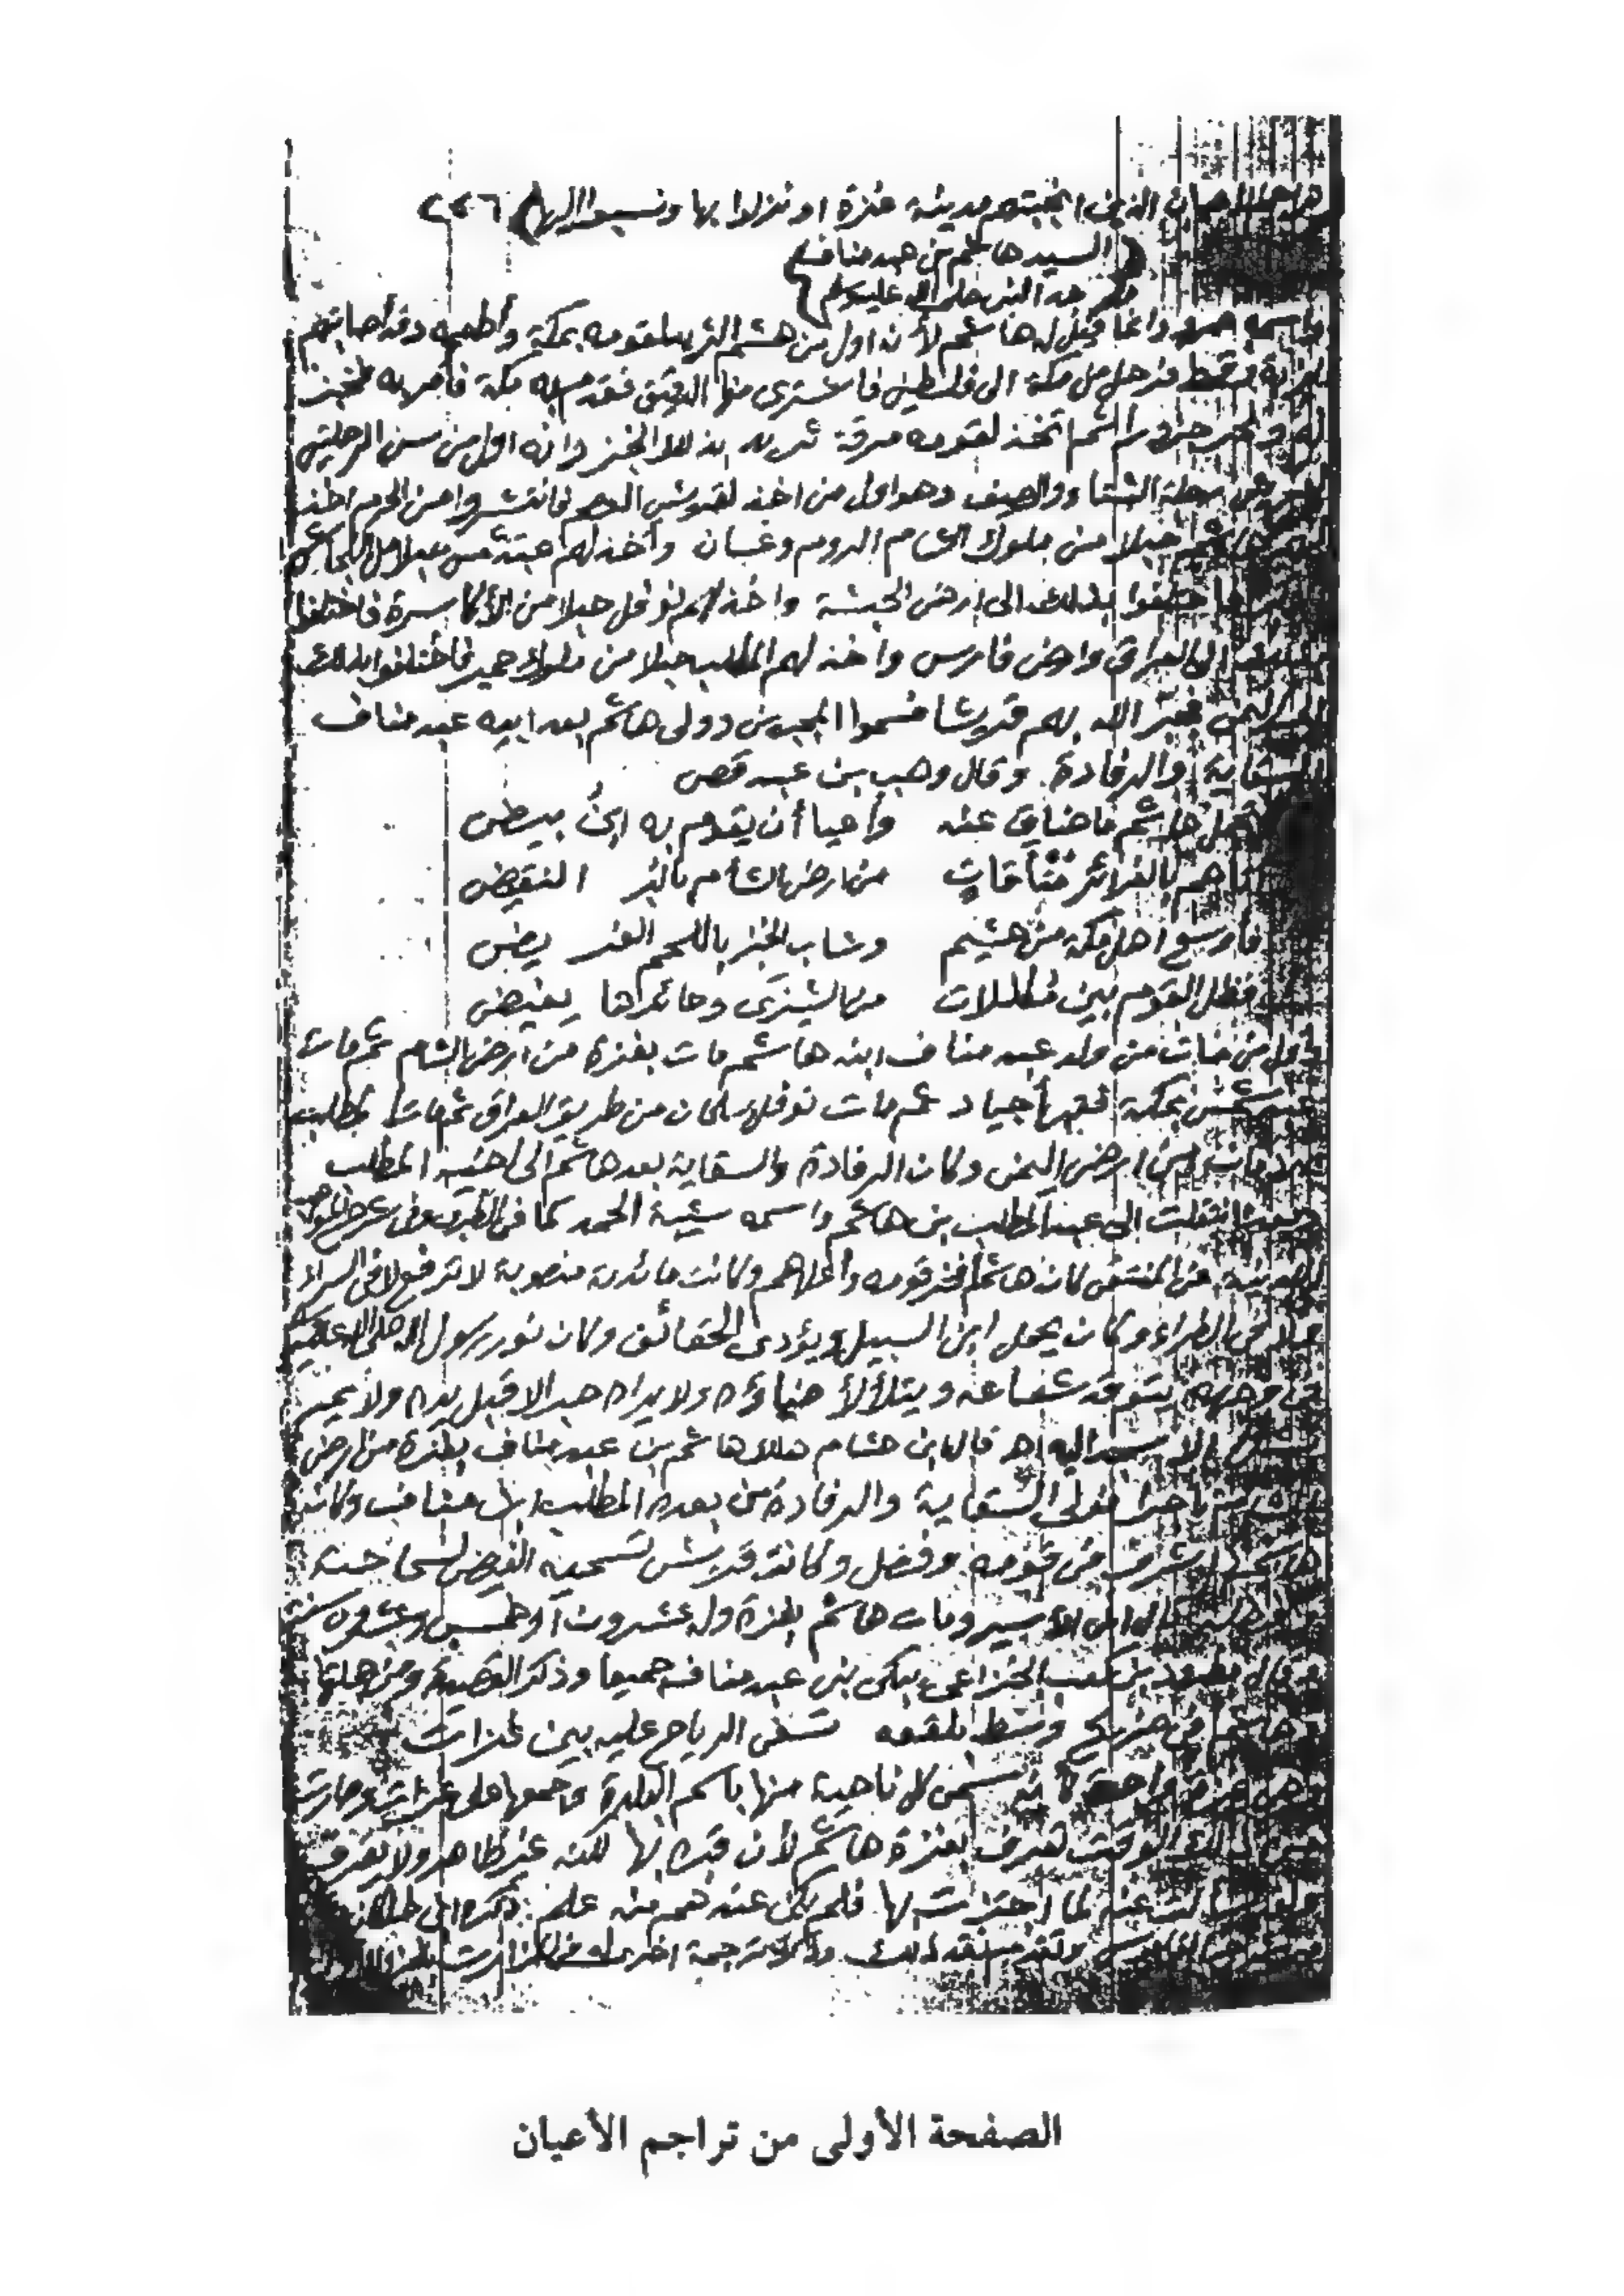 الأعيان الذين انجبتهم مدينة غزة او نزلوا بها ونسبوا اليها ٢٢٦
السيد هاشم بن عبد مناف
جد النبي صلى الله عليه وسلم
واسمه عمرو وانما قيل له هاشم لأنه اول من هشم الثريد لقومه بمكة وأطعمه وقد أصابتهم
فرحل من مكة الى فلسطين فاشترى منها الدقيق فقدم به مكة فأمر به فخبز
له ثم اتخذ لقومه مرقة ثريد بذلك الخبز وانه اول من سن الرحلتين
رحلة الشتاء والصيف وهو اول من اخذ لقريش العصم فانتشروا من الحرم اخذ
حبلا من ملوك الشام الروم وغسان وأخذ لهم عبد شمس حبلا من النجاشي
فاختلفوا بذلك الى ارض الحبشة واخذ لهم نوفل حبلا من الأكاسرة فاختلفوا
الى العراق وارض فارس واخذ لهم المطلب حبلا من ملوك حمير فاختلفوا بذلك
الى اليمن فجبر الله بهم قريشا فسموا المجبرين وولى هاشم بعد ابيه عبد مناف
السقاية والرفادة وقال وهب بن عبد قصي
تحمل هاشم ما ضاق عنه وأعيا أن يقوم به ابن بيض
أتاهم بالغرائر متأقات من ارض الشأم بالبر النقيض
فأوسع اهل مكة من هشيم وشاب الخبز باللحم الغريض
فظل القوم بين مكللات من الشيزى وحائرها يفيض
وأول من مات من ولد عبد مناف ابنه هاشم مات بغزة من ارض الشام ثم مات
عبد شمس بمكة فقبر بأجياد ثم مات نوفل بسلمان من طريق العراق ثم مات المطلب
من ارض اليمن وكان الرفادة والسقاية بعد هاشم الى اخيه المطلب
انتقلت الى عبد المطلب بن هاشم واسمه شيبة الحمد كما في الطبري وفي شرح المواهب
اللدنية عن المنتقى كان هاشم افخر قومه وأعلاهم وكانت مائدته منصوبة لا ترفع لا في السراء
ولا في الضراء وكان يحمل ابن السبيل ويؤدي الحقائق وكان نور رسول الله صلى الله عليه وسلم
في وجهه يتوقد شعاعه ويتلألأ ضياؤه ولا يراه حبر الا قبل يده ولا يمر
الا سجد اليه اهـ قال ابن هشام هلك هاشم بن عبد مناف بغزة من ارض
الشام تاجرا فولي السقاية والرفادة من بعده المطلب بن عبد مناف وكان
شرف في قومه وفضل وكانت قريش تسميه الفيض لسماحته
ومات هاشم بغزة وله عشرون أو خمس وعشرون سنة
وقال مطرود بن كعب الخزاعي يبكي بني عبد مناف جميعا وذكر القصيدة ومن جملتها
وهاشم في ضريح وسط بلقعة تسفى الرياح عليه بين غزات
وهي غزة واحدة كأنه سمى كل ناحية منها باسم البلدة وجمعها على غزات وصارت
من ذلك الوقت تعرف بغزة هاشم لأن قبره بها لكنه غير ظاهر ولا يعرف
ولقد سألت عنه لما اجتزت بها فلم يكن عندهم منه علم
الصفحة الأولى من تراجم الأعيان